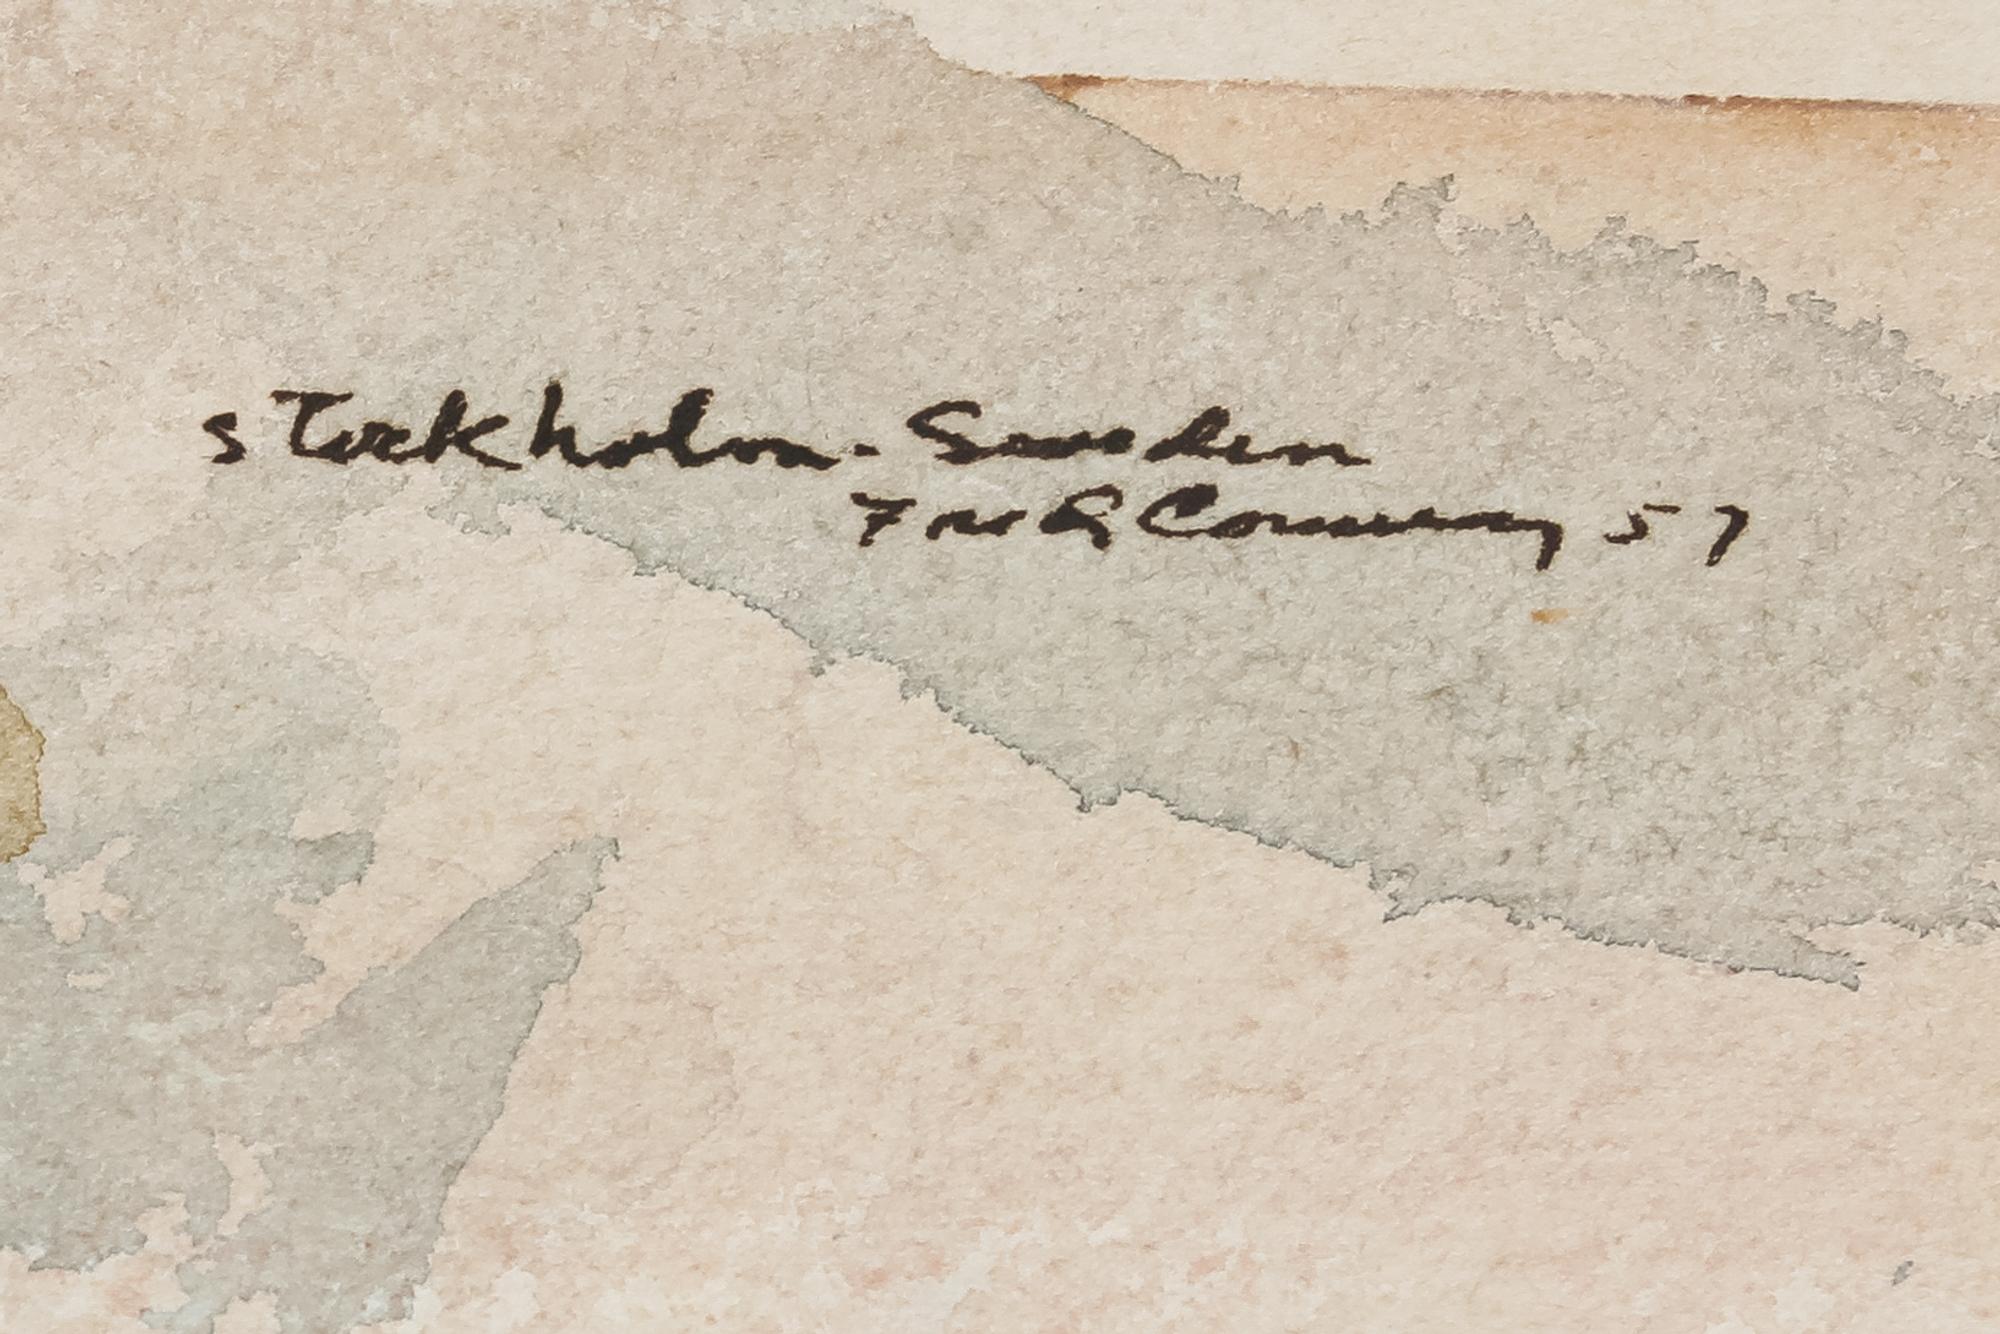 sTockholm - Sweden
Fred Conway 57